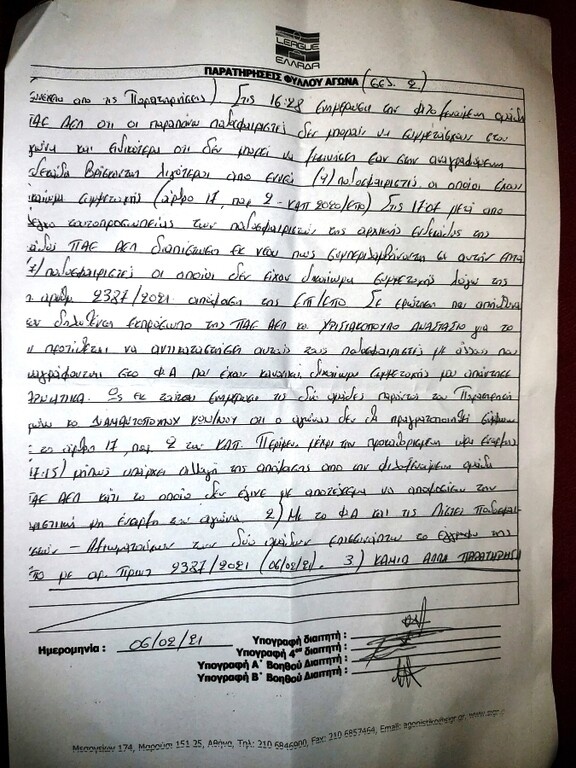 LEAGUE
ΕΛΛΑΔΑ
ΠΑΡΑΤΗΡΗΣΕΙΣ ΦΥΛΛΟΥ ΑΓΩΝΑ (σελ. 2)
από τις Παρατηρήσεις) Στις 16:28 ενημέρωσα την φιλοξενούμενη ομάδα
ΠΑΕ ΑΕΛ ότι οι παραπάνω ποδοσφαιριστές δεν μπορούν να συμμετάσχουν στον
αγώνα και ειδικότερα ότι δεν μπορεί να ξεκινήσει εάν στην αναγραφόμενη
βρίσκονται λιγότεροι από επτά (7) ποδοσφαιριστές οι οποίοι έχουν
δικαίωμα συμμετοχής (άρθρο 17, παρ 2 - ΚΑΠ 2020/ΕΠΟ) Στις 17:07 μετά από
έλεγχο ταυτοπροσωπείας των ποδοσφαιριστών της αρχικής ενδεκάδας της
ομάδος ΠΑΕ ΑΕΛ διαπίστωσα εκ νέου πως συμπεριλαμβάνονται σε αυτήν επτά
(7) ποδοσφαιριστές οι οποίοι δεν είχαν δικαίωμα συμμετοχής λόγω της
αριθμ 2387/2021 απόφαση της ΕΠ/ΕΠΟ Σε ερώτηση που απηύθυνα
στον δηλωθέντα εκπρόσωπο της ΠΑΕ ΑΕΛ κο ΧΡΙΣΤΑΚΟΠΟΥΛΟ ΑΝΑΣΤΑΣΙΟ για το
αν προτίθεται να αντικαταστήσει αυτούς τους ποδοσφαιριστές με άλλους που
αναγράφονται στο Φ.Α που έχουν κανονικά δικαίωμα συμμετοχής μου απάντησε
ΑΡΝΗΤΙΚΑ. Ως εκ τούτου ενημέρωσα τις δύο ομάδες παρόντος του Παρατηρητή
κο ΔΙΑΜΑΝΤΟΠΟΥΛΟΥ ΚΩΝ/ΝΟΥ ότι ο αγώνας δεν θα πραγματοποιηθεί σύμφωνα
με το άρθρο 17, παρ 2 του ΚΑΠ. Περίμενα μέχρι την προκαθορισμένη ώρα έναρξης
(17:15) μήπως υπάρχει αλλαγή της απόφασης από την φιλοξενούμενη ομάδα
ΠΑΕ ΑΕΛ κάτι το οποίο δεν έγινε με αποτέλεσμα να αποφασίσω την
οριστική μη έναρξη του αγώνα 2) Με το Φ.Α και τις Λίστες Ποδοσφαι-
ριστών - Αξιωματούχων των δύο ομάδων επισυνάπτω το έγγραφο της
ΕΠΟ με αρ. Πρωτ 2387/2021 (06/02/21). 3) ΚΑΜΙΑ ΑΛΛΗ ΠΑΡΑΤΗΡΗΣΗ
Ημερομηνία : 06/02/21
Υπογραφή διαιτητή :
Υπογραφή 4ου διαιτητή :
Υπογραφή Α΄ Βοηθού Διαιτητή :
Υπογραφή Β΄ Βοηθού Διαιτητή :
Μεσογείων 174, Μαρούσι 151 25, Αθήνα, Τηλ: 210 6846900, Fax: 210 6857464, Email: